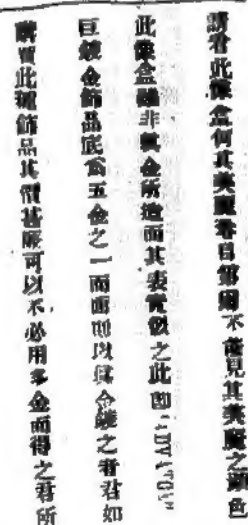 請看此像盒何其美麗奪目第因不能見其美麗之顏色
此像盒雖非真金所造而其表實似之此卽
巨鍍金飾品底為五金之一而面則以真金鍍之者君如
購買此種飾品其價甚廉可以不必用多金而得之君所